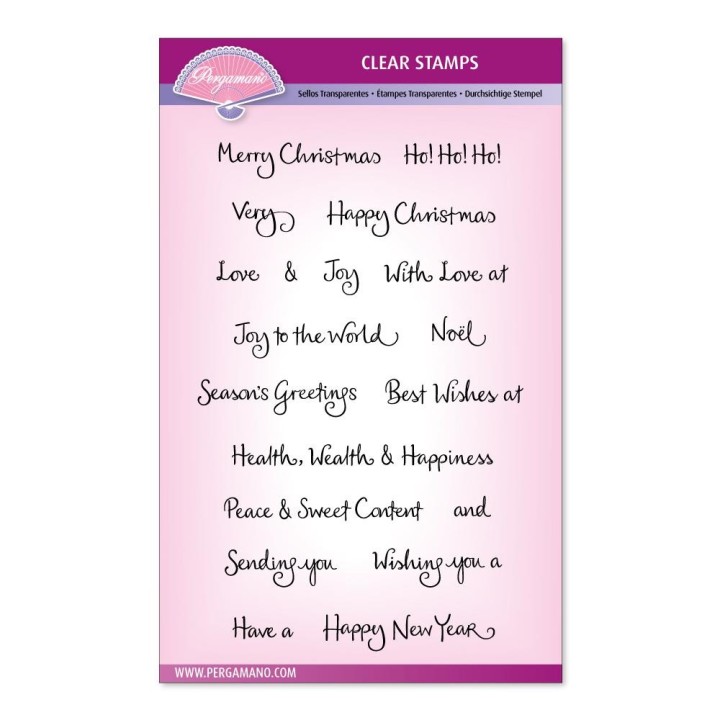 Pergamano
CLEAR STAMPS
Sellos Transparentes • Étampes Transparentes • Durchsichtige Stempel
Merry Christmas Ho! Ho! Ho!
Very Happy Christmas
Love & Joy With Love at
Joy to the World Noël
Season's Greetings Best Wishes at
Health, Wealth & Happiness
Peace & Sweet Content and
Sending you Wishing you a
Have a Happy New Year
WWW.PERGAMANO.COM